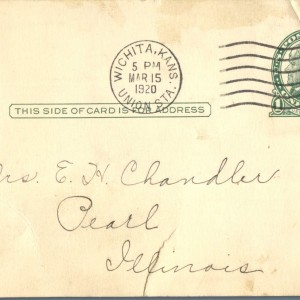 WICHITA, KANS.
5 PM
MAR 15
1920
UNION STA.
THIS SIDE OF CARD IS FOR ADDRESS
rs. E. H. Chandler
Pearl
Illinois